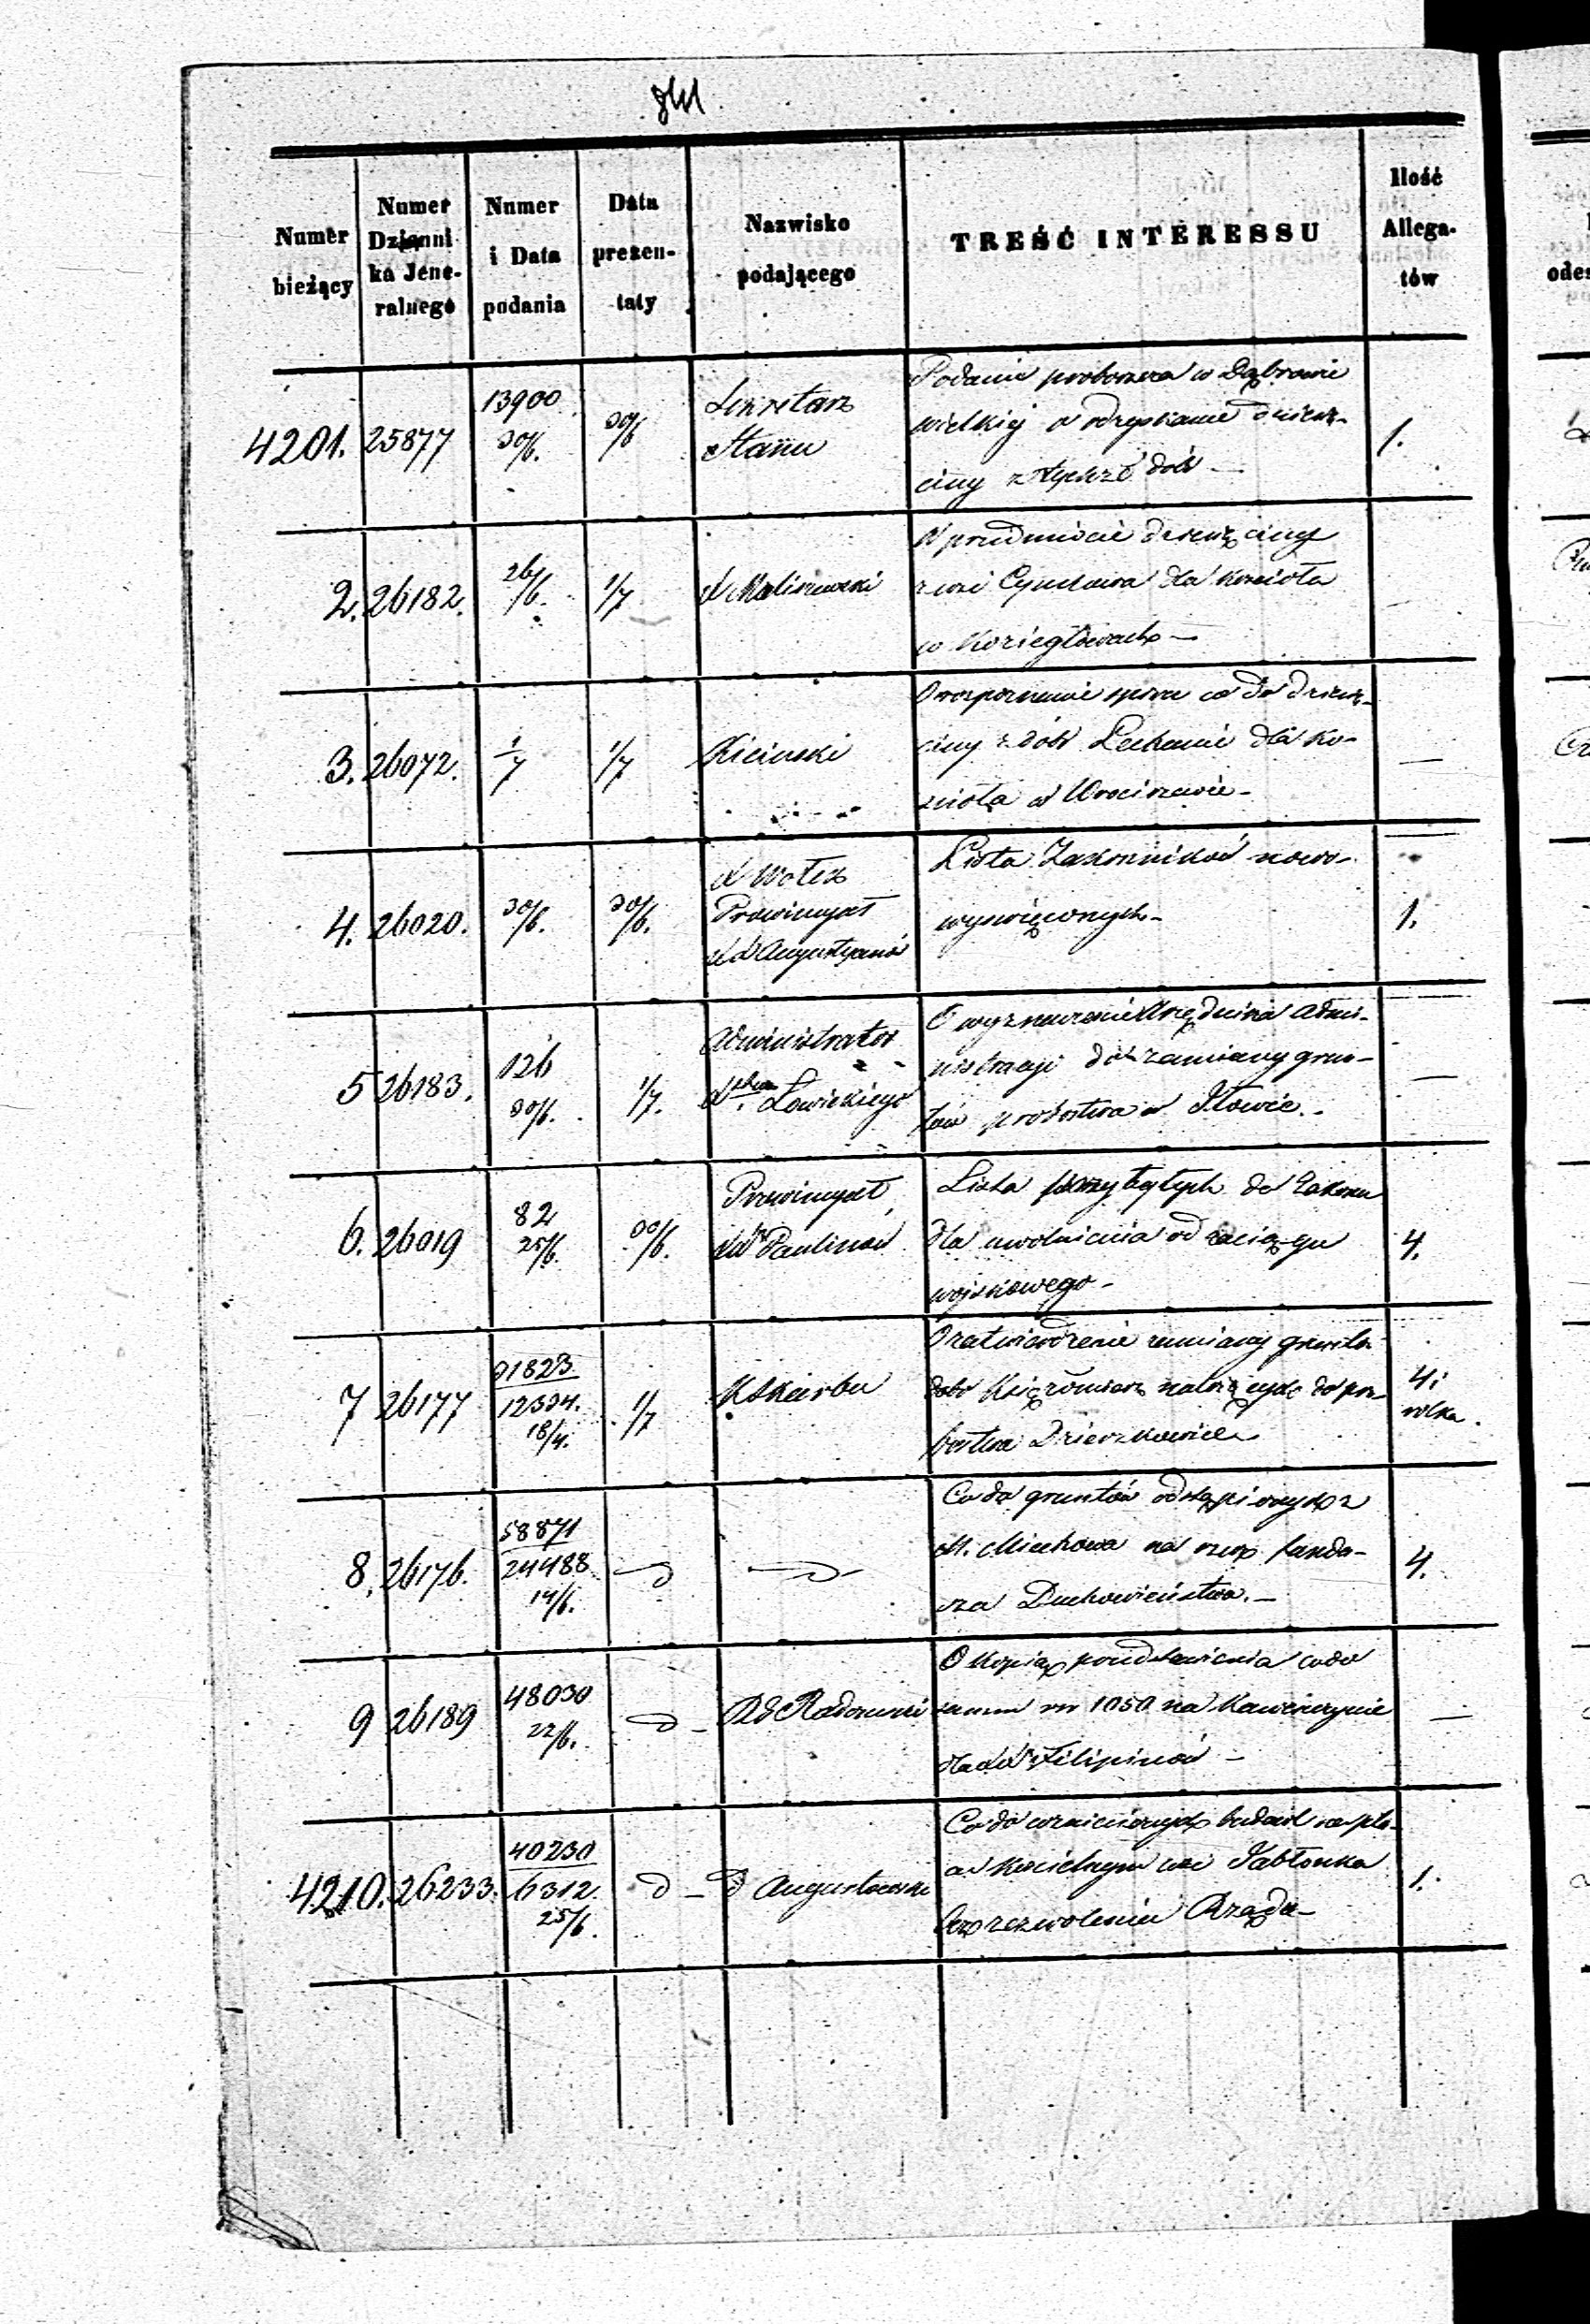 Numer bieżący
Numer Dzienni ka Jene- ralnego
Numer i Data podania
Data prezen- taty
Nazwisko podającego
TREŚĆ INTERESSU
Ilość Allega- tów
4201. 25877 13900 30/6. 30/6 Sekretarz Stanu 1.
Podanie proboszcza w Dąbrowie
wielkiej o odzyskanie dziesię-
ciny z tychże dóbr
2. 26182. 26/6. 1/7 X Maliszewski
W przedmiocie dziesięciny
z wsi dla Kościoła
w Koziegłowach —
3. 26072. 1/7 1/7 Kiciński —
O rozpoznanie sporu co do dziesię-
ciny z dóbr Lechanic dla Ko-
ścioła w Wrociszewie —
4. 26020. 30/6. 30/6. Prowincyał Augustyanów 1.
Lista Zakonników nowo-
wyświęconych —
5 26183. 126 30/6. 1/7. Administrator Łowickiego —
O wyznaczenie Urzędnika Admi-
nistracyi do zamiany grun-
tów probostwa w Iłowie. —
6. 26019 82 25/6. 30/6. Prowincyał Paulinów 4.
Lista przybyłych do Zakonu
dla uwolnienia od zaciągu
wojskowego —
7 26177 31823 12334. 18/4. 1/7 K Skarbu 4 i rolka.
O zatwierdzenie zamiany gruntów
dóbr Księżomierz należących do pro-
bostwa Dzierzkowice
8. 26176. 58871 24488 14/6. d d 4.
Co do gruntów odstąpionych z
M. Miechowa na rzecz fundu-
sza Duchowieństwa. —
9 26189 48030 22/6. d — R G Radomski —
O kopią przedstawienia co do
summ rs 1050 na Kawenczynie
dla Filipinów —
4210. 26233. 40230 6312. 25/6. d — d Augustowski 1.
Co do wzniesionych budowl na pla-
cu kościelnym wsi Jabłonka
bez zezwolenia Rządu —